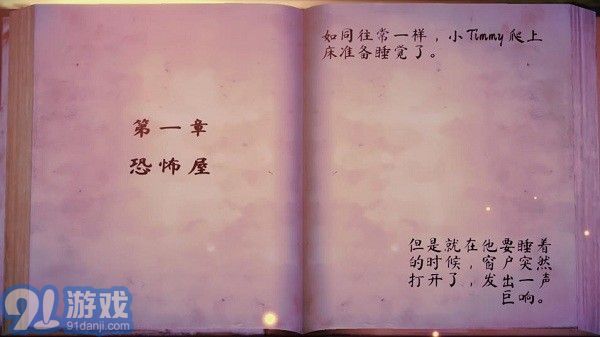 第一章
恐怖屋
如同往常一样，小Timmy爬上
床准备睡觉了。
但是就在他要睡着
的时候，窗户突然
打开了，发出一声
巨响。
91游戏
91danji.com